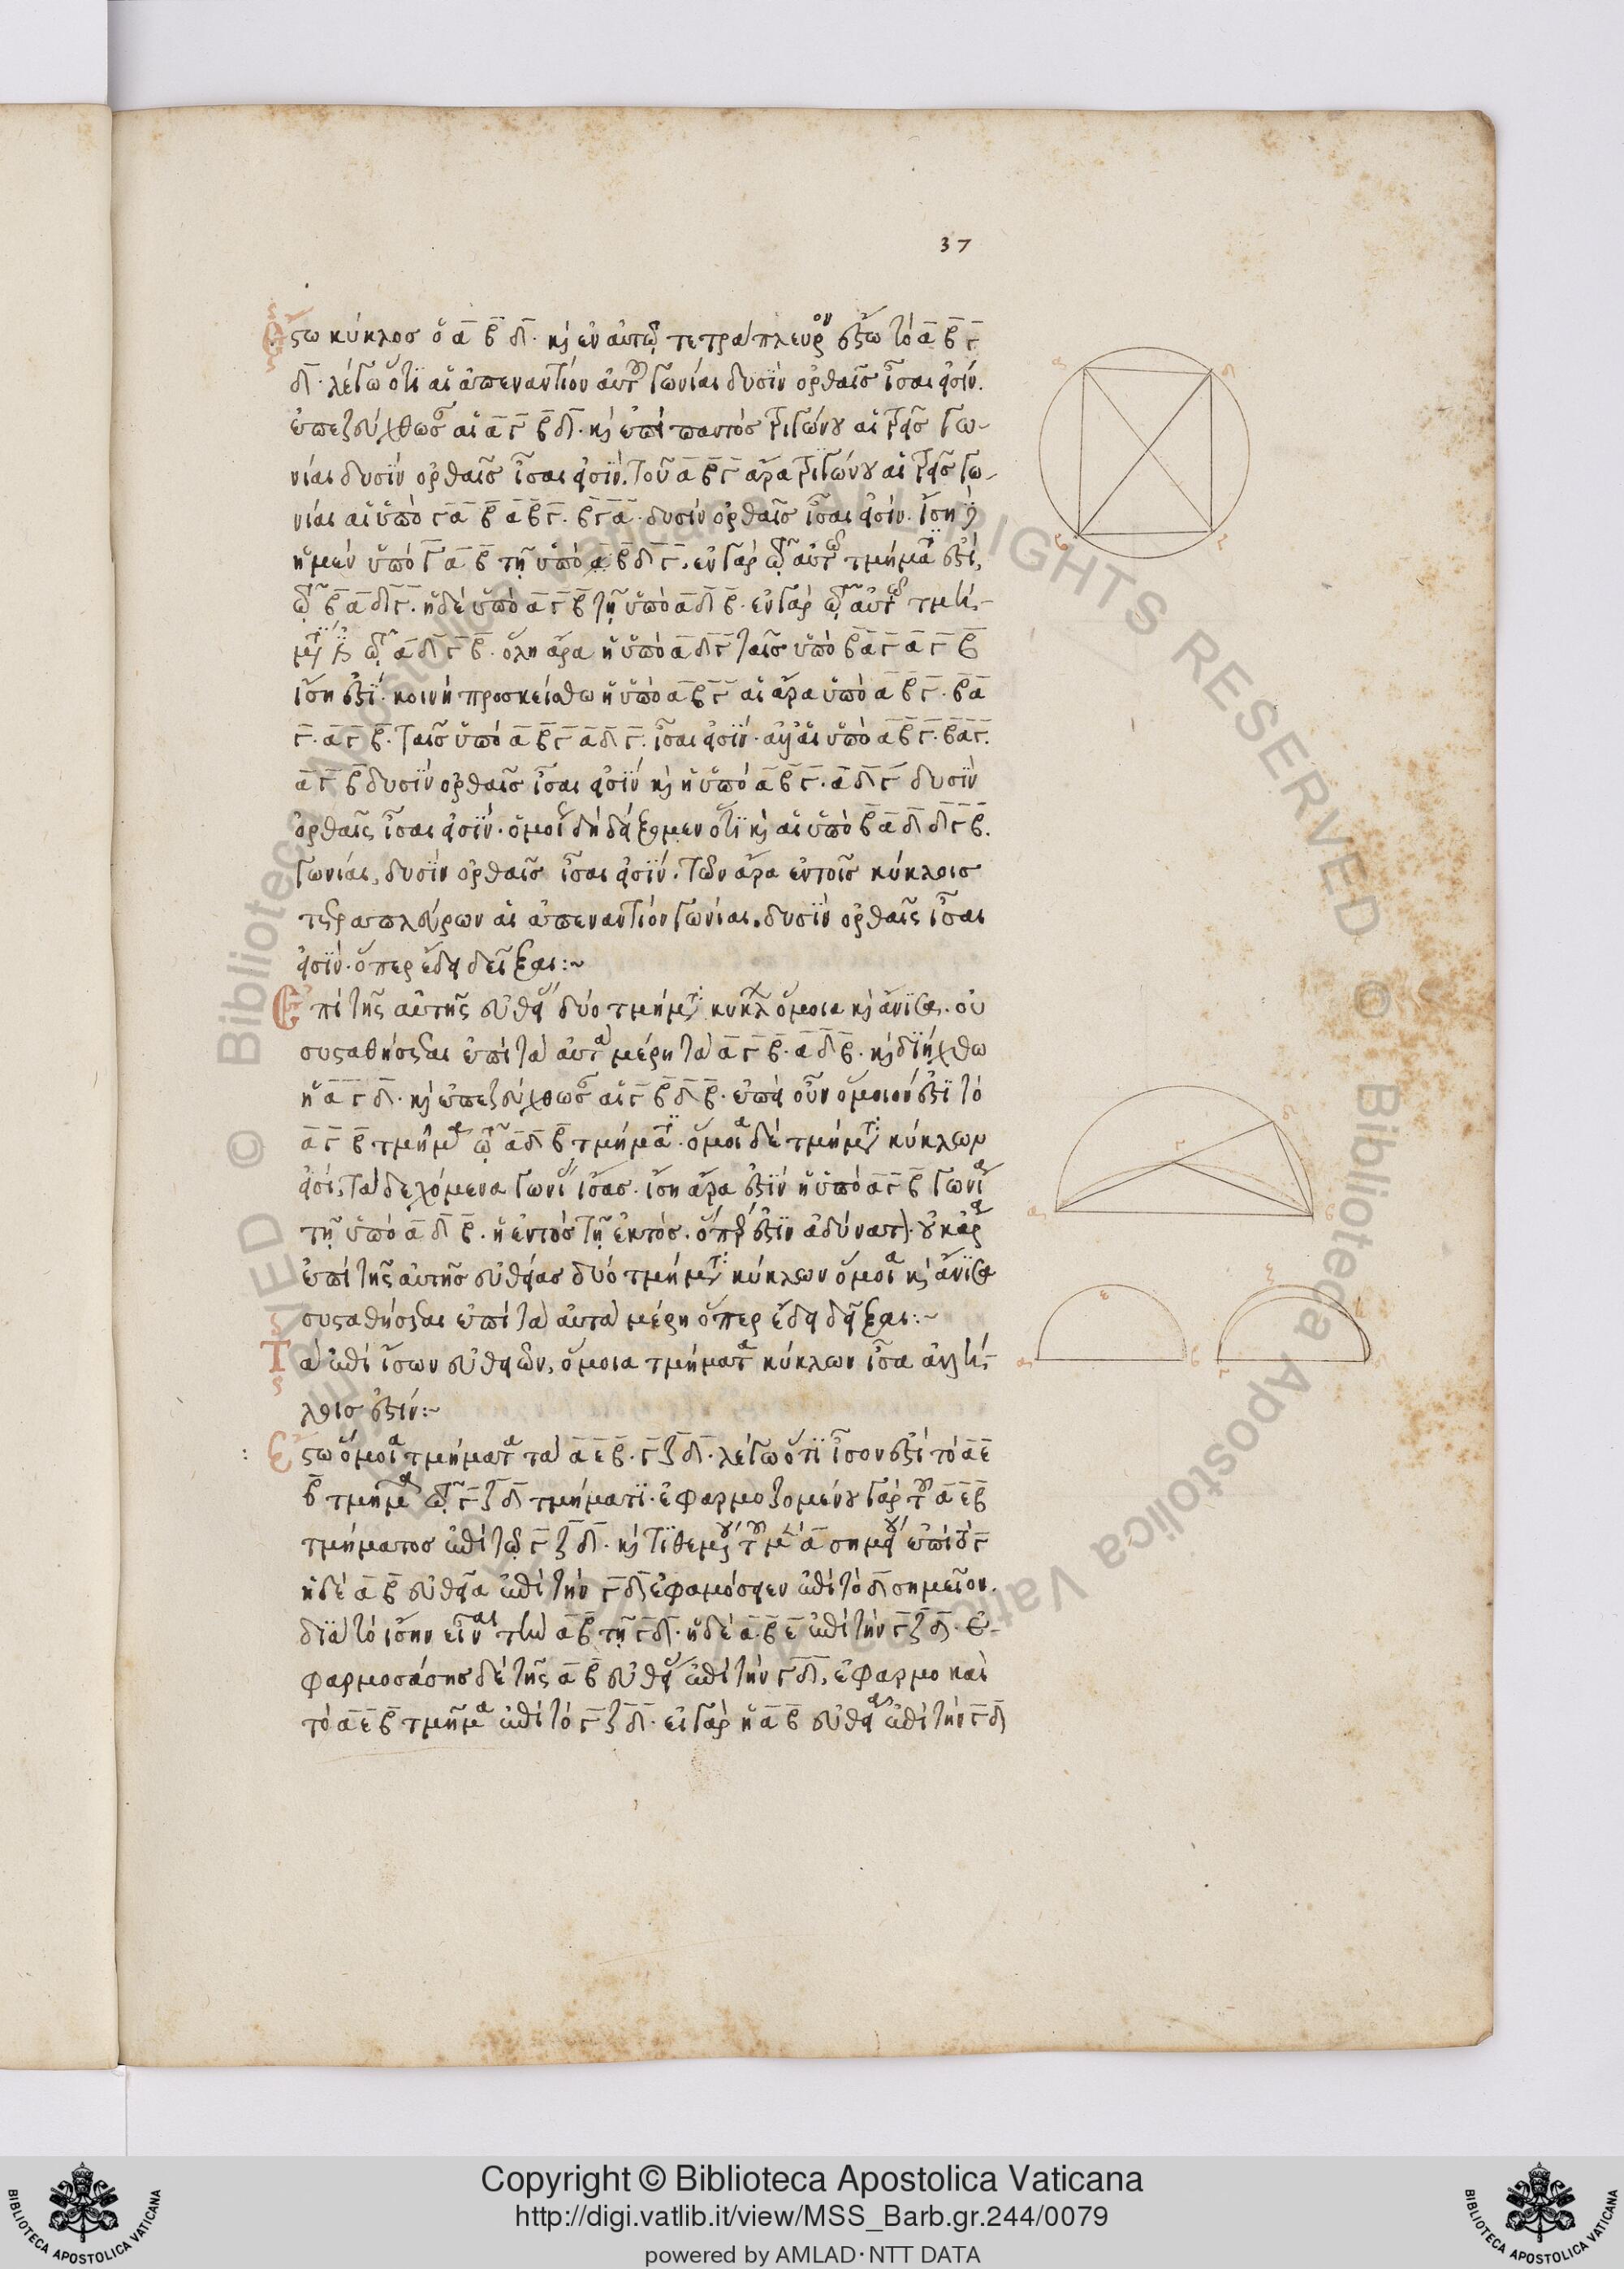 37
ἔστω κύκλος ὁ α β δ. καὶ ἐν αὐτῷ τετράπλευρον ἔστω τὸ α β γ
δ. λέγω ὅτι αἱ ἀπεναντίον αὐτοῦ γωνίαι δυσὶν ὀρθαῖς ἴσαι εἰσίν.
ἐπεζεύχθωσαν αἱ α γ β δ. καὶ ἐπεὶ παντὸς τριγώνου αἱ τρεῖς γω-
νίαι δυσὶν ὀρθαῖς ἴσαι εἰσίν. τοῦ α β γ ἄρα τριγώνου αἱ τρεῖς γω-
νίαι αἱ ὑπὸ γ α β α β γ. β γ α. δυσὶν ὀρθαῖς ἴσαι εἰσίν. ἴση
ἡ μὲν ὑπὸ γ α β τῇ ὑπὸ β δ γ. ἐν γὰρ τῷ αὐτῷ τμήματί ἐστι,
τῷ β α δ γ. ἡ δὲ ὑπὸ α γ β τῇ ὑπὸ α δ β. ἐν γὰρ τῷ αὐτῷ τμή-
ματί εἰσι τῷ α δ γ β. ὅλη ἄρα ἡ ὑπὸ α δ γ ταῖς ὑπὸ β α γ α γ β
ἴση ἐστί. κοινὴ προσκείσθω ἡ ὑπὸ α β γ αἱ ἄρα ὑπὸ α β γ. β α
γ. α γ β. ταῖς ὑπὸ α β γ α δ γ. ἴσαι εἰσίν. ἀλλ' αἱ ὑπὸ α β γ. β α γ.
α γ β δυσὶν ὀρθαῖς ἴσαι εἰσίν καὶ ἡ ὑπὸ α β γ. α δ γ δυσὶν
ὀρθαῖς ἴσαι εἰσίν. ὁμοίως δὴ δείξομεν ὅτι καὶ αἱ ὑπὸ β α δ δ γ β.
γωνίαι, δυσὶν ὀρθαῖς ἴσαι εἰσίν. τῶν ἄρα ἐν τοῖς κύκλοις
τετραπλεύρων αἱ ἀπεναντίον γωνίαι, δυσὶν ὀρθαῖς ἴσαι
εἰσίν. ὅπερ ἔδει δεῖξαι:~
Ἐπὶ τῆς αὐτῆς εὐθείας δύο τμήματα κύκλων ὅμοια καὶ ἄνισα. οὐ
συσταθήσεται ἐπὶ τὰ αὐτὰ μέρη τὰ α γ β. α δ β. καὶ διήχθω
ἡ α γ δ. καὶ ἐπεζεύχθωσαν αἱ γ β δ β. ἐπεὶ οὖν ὅμοιόν ἐστι τὸ
α γ β τμῆμα τῷ α δ β τμήματι. ὅμοια δὲ τμήματα κύκλων
εἰσί, τὰ δεχόμενα γωνίας ἴσας. ἴση ἄρα ἐστὶν ἡ ὑπὸ α γ β γωνία
τῇ ὑπὸ α δ β. ἡ ἐντὸς τῇ ἐκτός. ὅπερ ἐστὶν ἀδύνατον. οὐκ ἄρα
ἐπὶ τῆς αὐτῆς εὐθείας δύο τμήματα κύκλων ὅμοια καὶ ἄνισα
συσταθήσεται ἐπὶ τὰ αὐτὰ μέρη ὅπερ ἔδει δεῖξαι:~
Τὰ ἐπὶ ἴσων εὐθειῶν, ὅμοια τμήματα κύκλων ἴσα ἀλλή-
λοις ἐστίν:~
ἔστω ὅμοια τμήματα τὰ α ε β. γ ζ δ. λέγω ὅτι ἴσον ἐστὶ τὸ α ε
β τμῆμα τῷ γ ζ δ τμήματι. ἐφαρμοζομένου γὰρ τοῦ α ε β
τμήματος ἐπὶ τῷ γ ζ δ. καὶ τιθεμένου τοῦ μὲν α σημείου ἐπὶ τὸ γ
ἡ δὲ α β εὐθεῖα ἐπὶ τὴν γ δ ἐφαμόσειεν ἐπὶ τὸ δ σημεῖον.
διὰ τὸ ἴσην εἶναι τὴν α β τῇ γ δ. ἡ δὲ α β ε ἐπὶ τὴν γ ζ δ. ἐ-
φαρμοσάσης δὲ τῆς α β εὐθείας ἐπὶ τὴν γ δ, ἐφαρμο καὶ
τὸ α ε β τμῆμα ἐπὶ τὸ γ ζ δ. εἰ γὰρ ἡ α β εὐθεῖα ἐπὶ τὴν γ δ
α δ
β γ
δ
γ
α β
ε ζ
α β γ
© Biblioteca Apostolica Vaticana ALL RIGHTS RESERVED © Biblioteca Apostolica Vaticana
BIBLIOTECA APOSTOLICA VATICANA
Copyright © Biblioteca Apostolica Vaticana
http://digi.vatlib.it/view/MSS_Barb.gr.244/0079
powered by AMLAD·NTT DATA
BIBLIOTECA APOSTOLICA VATICANA